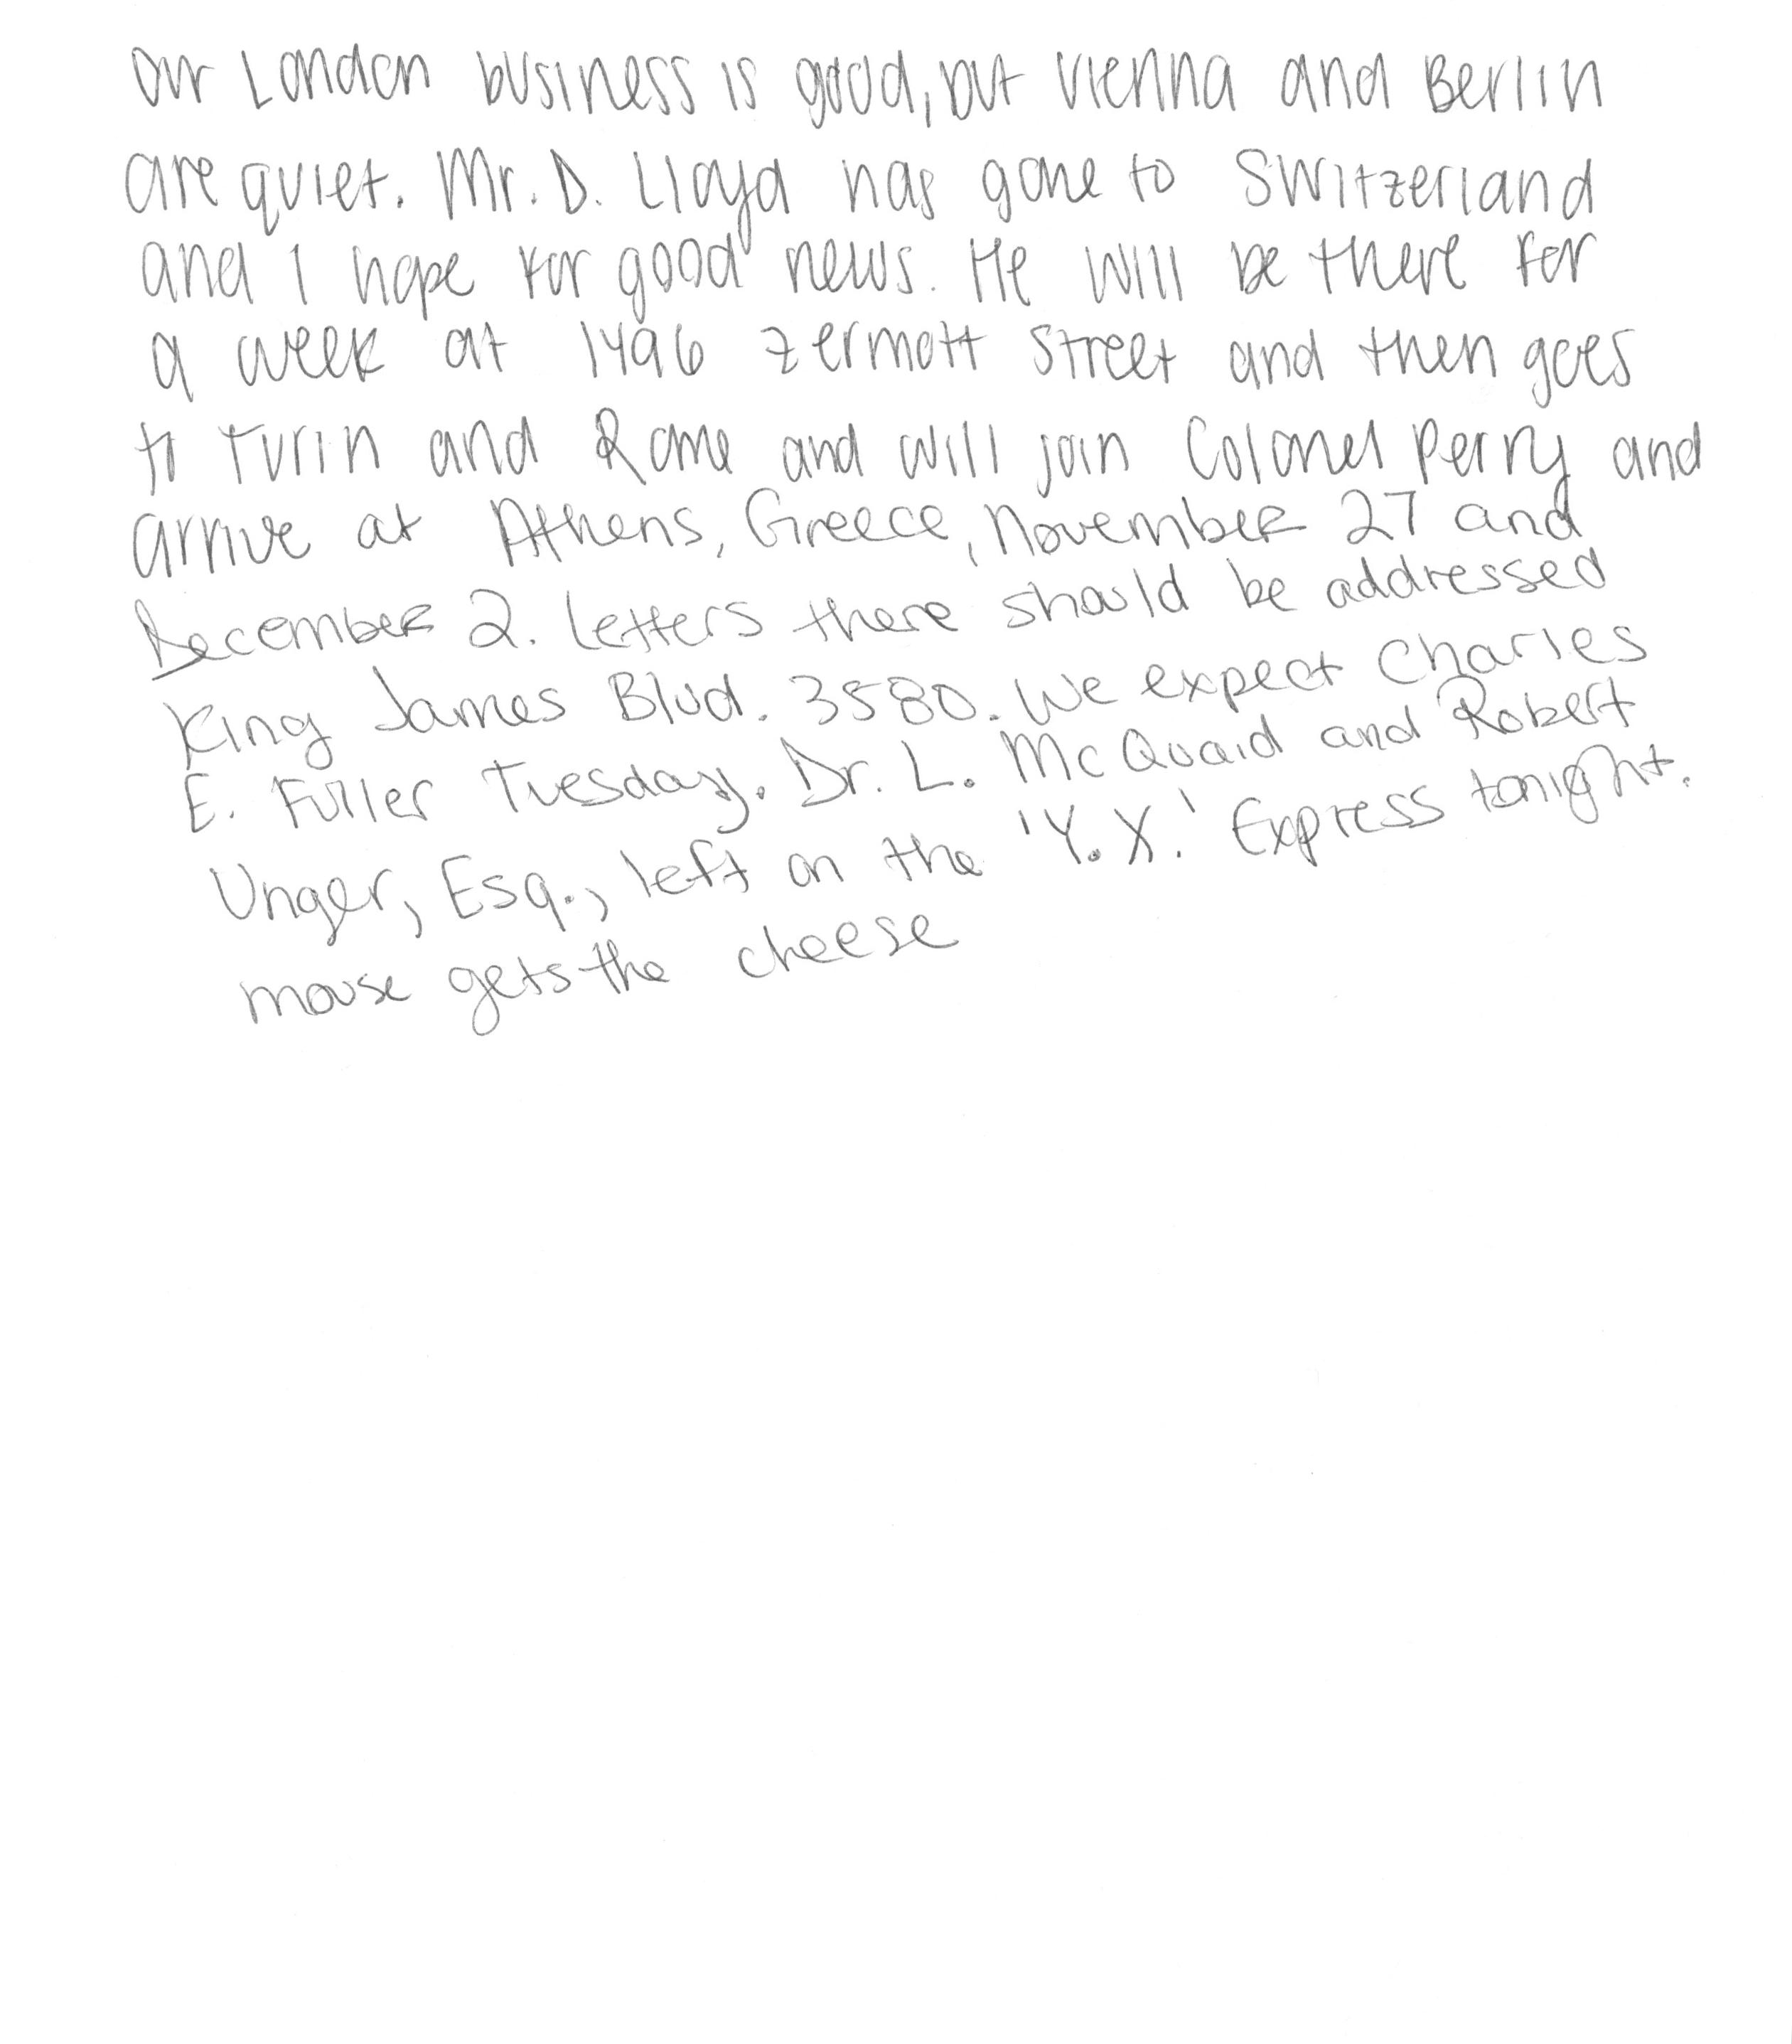 Our London business is good, but Vienna and Berlin
are quiet. Mr. D. Lloyd has gone to Switzerland
and I hope for good news. He will be there for
a week at 1496 Zermott Street and then goes
to Turin and Rome and will join Colonel Perry and
arrive at Athens, Greece, November 27 and
December 2. Letters there should be addressed
King James Blvd. 3580. We expect Charles
E. Fuller Tuesday. Dr. L. McQuaid and Robert
Unger, Esq., left on the 'Y.X.' Express tonight.
mouse gets the cheese